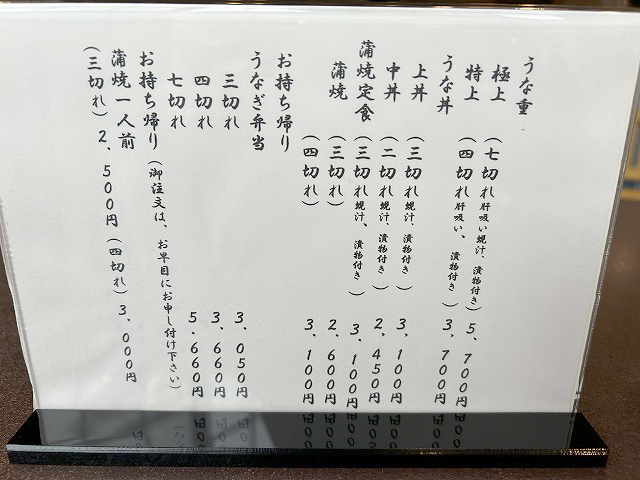 うな重
極上（七切れ肝吸い蜆汁、漬物付き）5、700円
特上（四切れ肝吸い、漬物付き）3、700円
うな丼
上丼（三切れ蜆汁、漬物付き）3、100円
中丼（二切れ蜆汁、漬物付き）2、450円
蒲焼定食（三切れ蜆汁、漬物付き）3、100円
蒲焼（三切れ）2、600円
（四切れ）3、100円
お持ち帰り
うなぎ弁当
三切れ 3、050円
四切れ 3、660円
七切れ 5、660円
お持ち帰り（御注文は、お早目にお申し付け下さい）
蒲焼一人前
（三切れ）2、500円（四切れ）3、000円